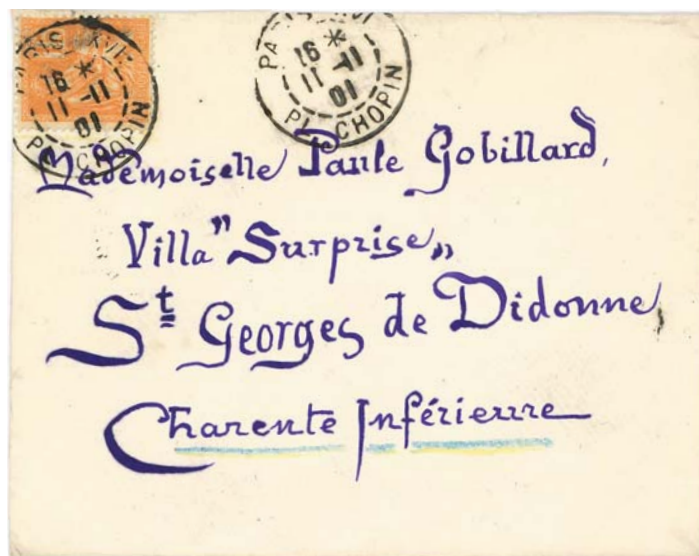 16 *
11 -11
01
PL. CHOPIN
16 *
11 -11
01
PL. CHOPIN
Mademoiselle Paule Gobillard,
Villa "Surprise„
St Georges de Didonne
Charente Inférieure